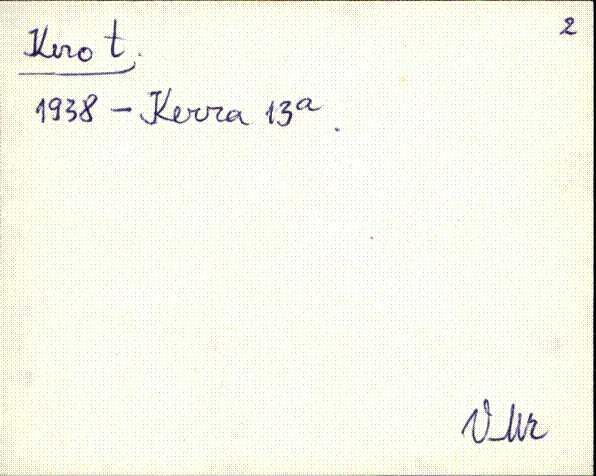 2
Kero t.
1938 - Kerra 13a.
VMr